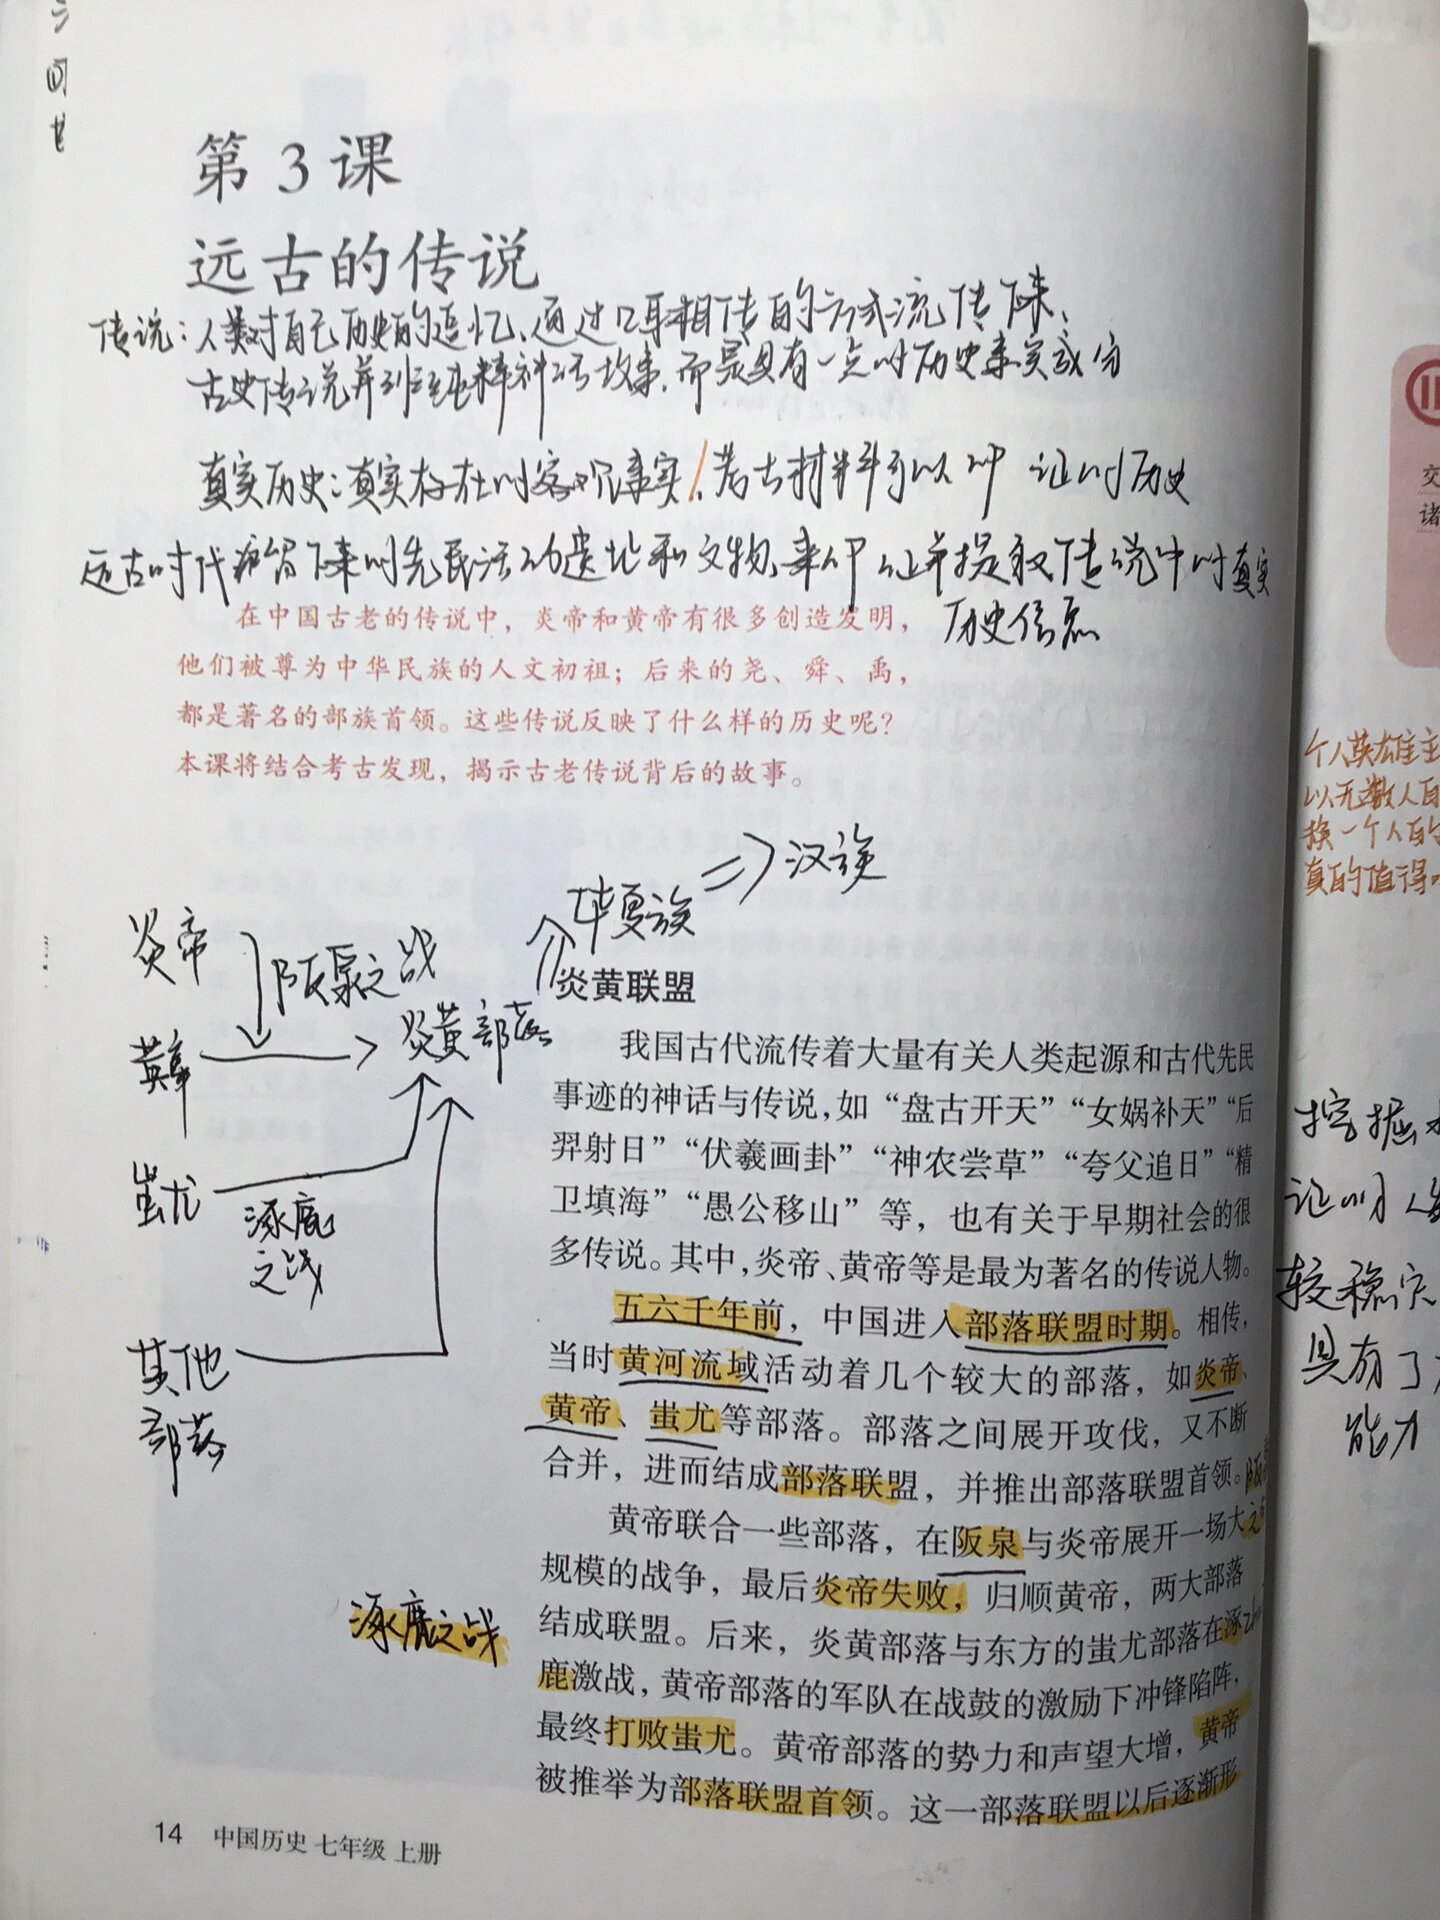 第3课
远古的传说
传说：人类对自己历史的追忆、通过口耳相传的方式流传下来、
古史传说并非纯粹神话故事，而是具有一点的历史事实成分
真实历史：真实存在的客观事实/、考古材料可以印证的历史
远古时代 留下来的先民活动遗址和文物、来印证并提取传说中的真实
历史信息
在中国古老的传说中，炎帝和黄帝有很多创造发明，
他们被尊为中华民族的人文初祖；后来的尧、舜、禹，
都是著名的部族首领。这些传说反映了什么样的历史呢？
本课将结合考古发现，揭示古老传说背后的故事。
华夏族 => 汉族
炎帝
阪泉之战
炎黄部落
蚩尤
涿鹿
之战
其他
部落
炎黄联盟
我国古代流传着大量有关人类起源和古代先民
事迹的神话与传说，如“盘古开天”“女娲补天”“后
羿射日”“伏羲画卦”“神农尝草”“夸父追日”“精
卫填海”“愚公移山”等，也有关于早期社会的很
多传说。其中，炎帝、黄帝等是最为著名的传说人物。
五六千年前，中国进入部落联盟时期。相传，
当时黄河流域活动着几个较大的部落，如炎帝、
黄帝、蚩尤等部落。部落之间展开攻伐，又不断
合并，进而结成部落联盟，并推出部落联盟首领。
黄帝联合一些部落，在阪泉与炎帝展开一场大
规模的战争，最后炎帝失败，归顺黄帝，两大部落
结成联盟。后来，炎黄部落与东方的蚩尤部落在涿
鹿激战，黄帝部落的军队在战鼓的激励下冲锋陷阵，
最终打败蚩尤。黄帝部落的势力和声望大增，黄帝
被推举为部落联盟首领。这一部落联盟以后逐渐形
涿鹿之战
14 中国历史 七年级 上册
交
诸
个人英雄主
以无数人的
换一个人的
真的值得
挖掘
证明
较稳定
具有了
能力